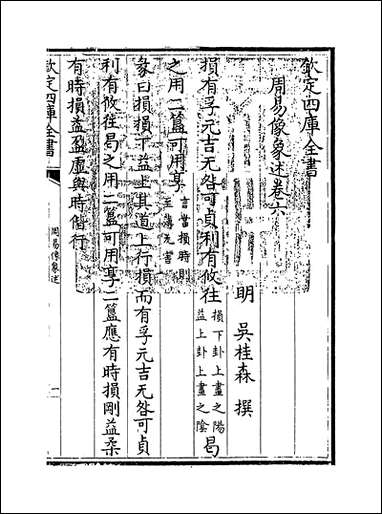 欽定四庫全書
周易像象述卷六
明 吳桂森 撰
損有孚元吉无咎可貞利有攸往損下卦上畫之陽益上卦上畫之陰曷
之用二簋可用享言當損時則至薄无害
彖曰損損下益上其道上行損而有孚元吉无咎可貞
利有攸往曷之用二簋可用享二簋應有時損剛益柔
有時損益盈虛與時偕行
欽定四庫全書
周易像象述
一